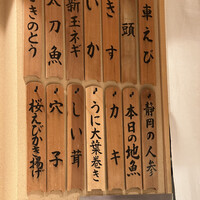 車えび
頭
きす
いか
新玉ネギ
太刀魚
きのとう
静岡の人参
本日の地魚
カキ
うに大葉巻き
しい茸
穴子
桜えびかき揚げ